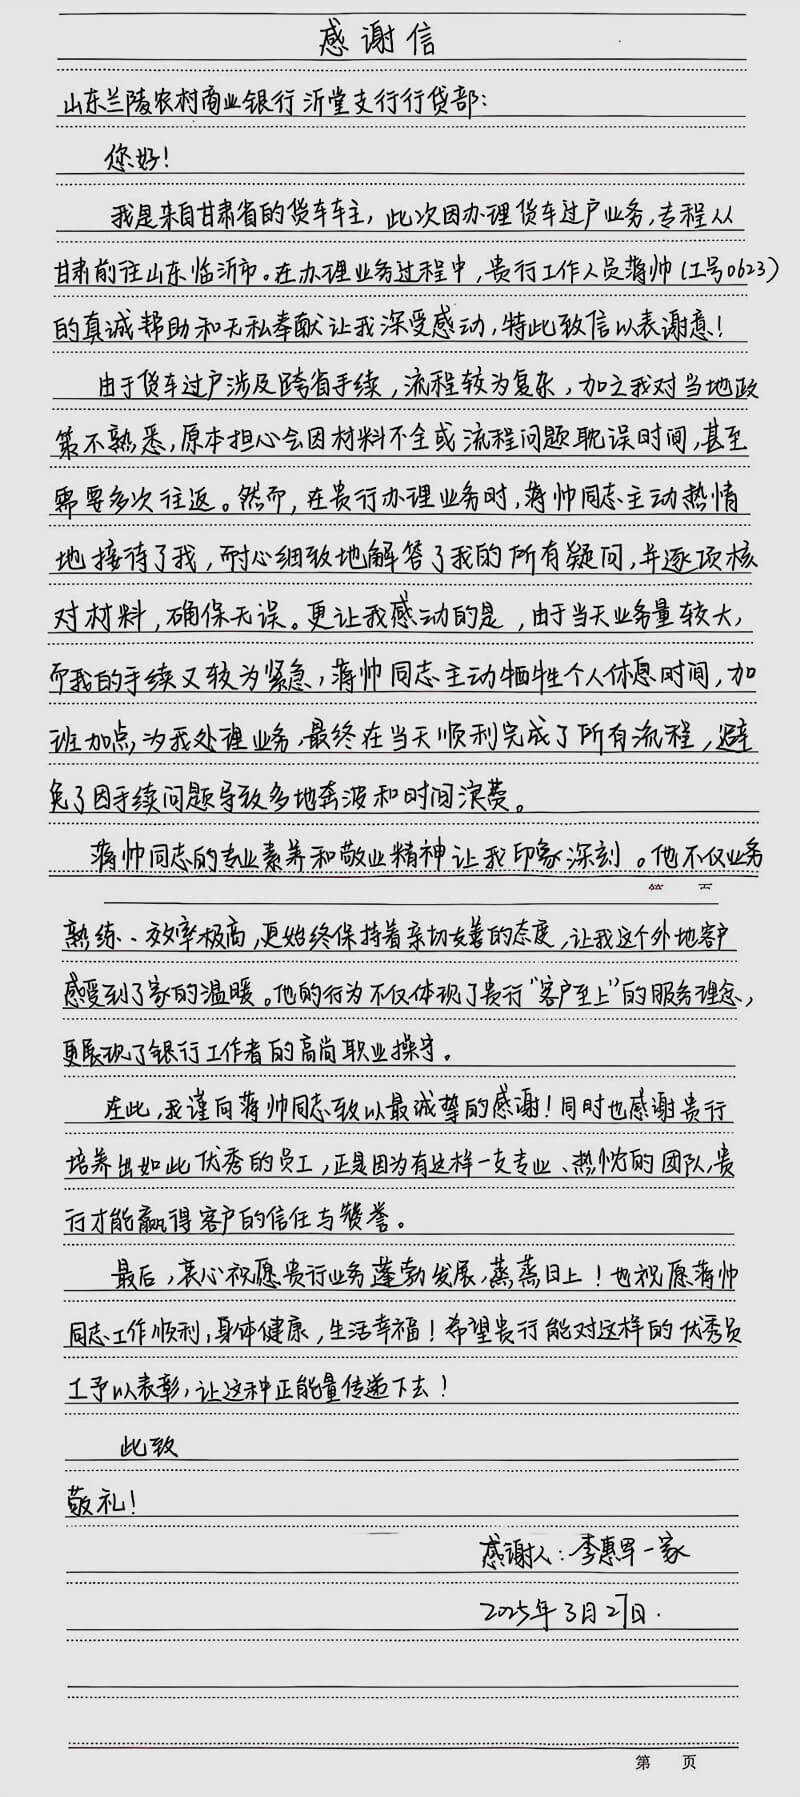 感谢信
山东兰陵农村商业银行沂堂支行行贷部：
您好！
我是来自甘肃省的货车车主，此次因办理货车过户业务，专程从
甘肃前往山东临沂市。在办理业务过程中，贵行工作人员蒋帅（工号0623）
的真诚帮助和无私奉献让我深受感动，特此致信以表谢意！
由于货车过户涉及跨省手续，流程较为复杂，加之我对当地政
策不熟悉，原本担心会因材料不全或流程问题耽误时间，甚至
需要多次往返。然而，在贵行办理业务时，蒋帅同志主动热情
地接待了我，耐心细致地解答了我的所有疑问，并逐项核
对材料，确保无误。更让我感动的是，由于当天业务量较大，
而我的手续又较为紧急，蒋帅同志主动牺牲个人休息时间，加
班加点为我处理业务，最终在当天顺利完成了所有流程，避
免了因手续问题导致多地奔波和时间浪费。
蒋帅同志的专业素养和敬业精神让我印象深刻。他不仅业务
熟练、效率极高，更始终保持着亲切友善的态度，让我这个外地客户
感受到了家的温暖。他的行为不仅体现了贵行“客户至上”的服务理念，
更展现了银行工作者的高尚职业操守。
在此，我谨向蒋帅同志致以最诚挚的感谢！同时也感谢贵行
培养出如此优秀的员工，正是因为有这样一支专业、热忱的团队，贵
行才能赢得客户的信任与赞誉。
最后，衷心祝愿贵行业务蓬勃发展，蒸蒸日上！也祝愿蒋帅
同志工作顺利，身体健康，生活幸福！希望贵行能对这样的优秀员
工予以表彰，让这种正能量传递下去！
此致
敬礼！
感谢人：李惠军一家
2025年3月27日.
第 页